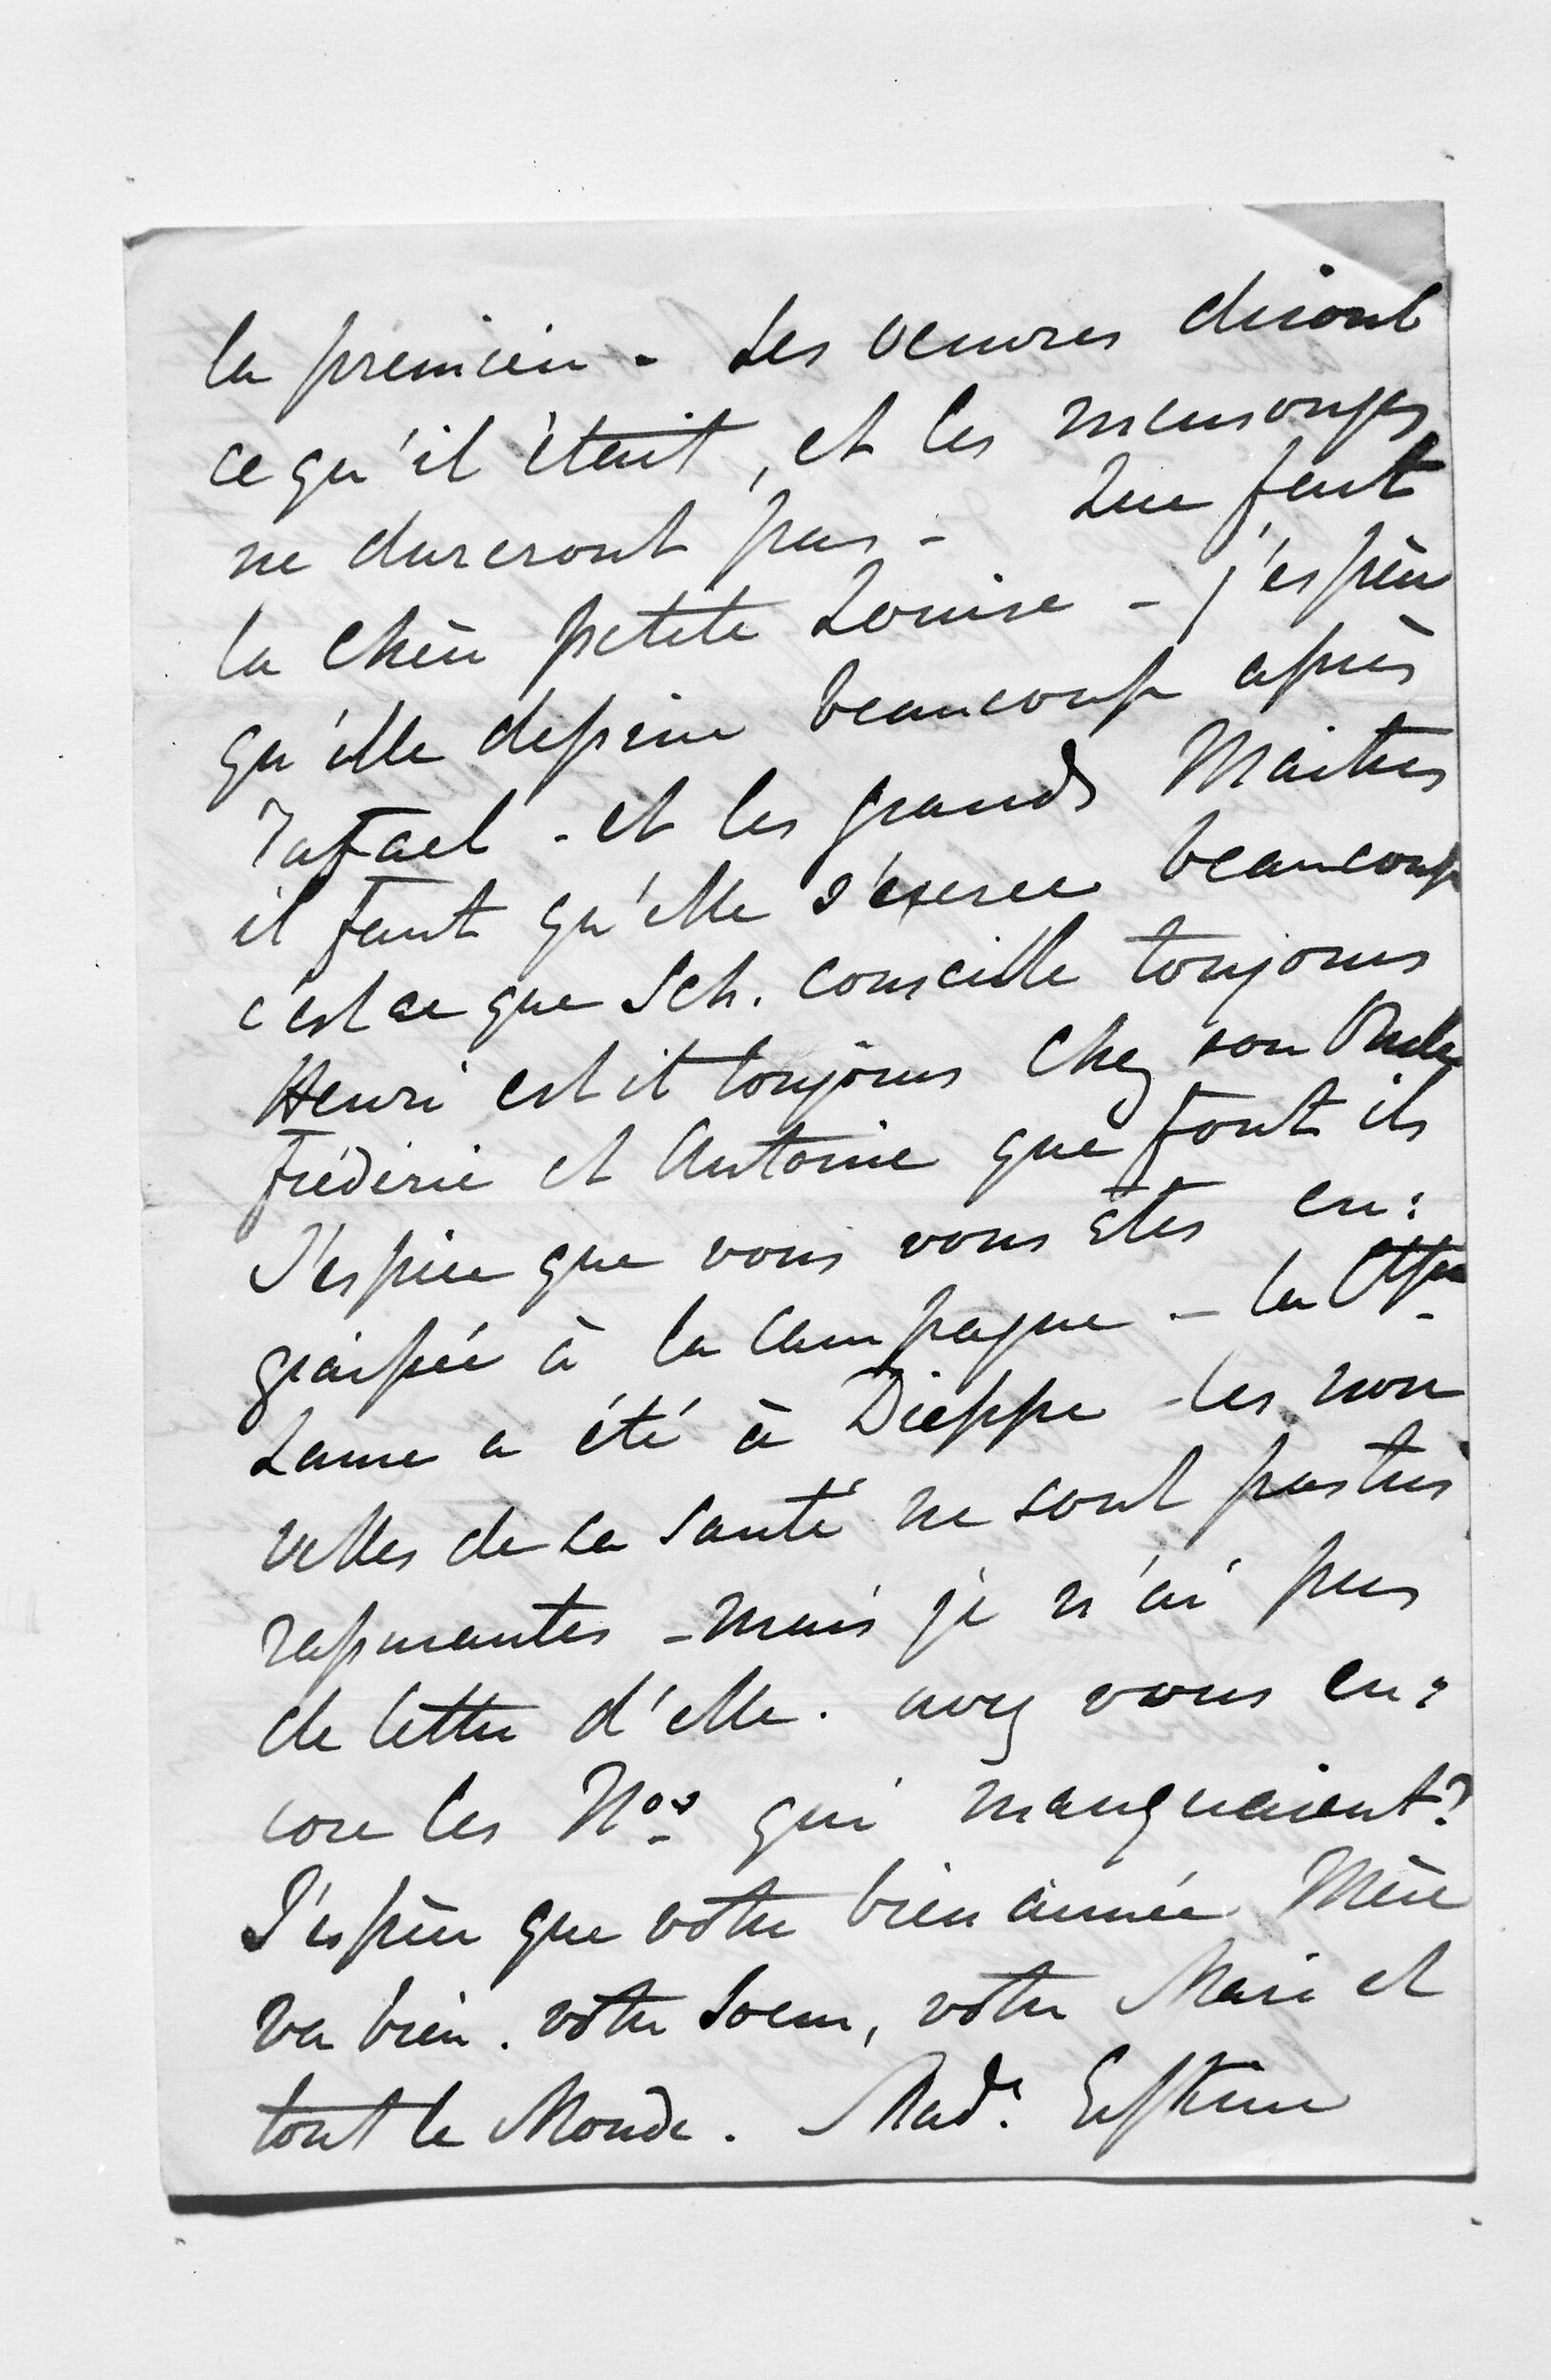 la premiere - Les oeuvres diront
ce qu'il était, et les mensonges
ne dureront pas - Que fait
la chère petite Louise - j'espère
qu'elle dessine beaucoup après
rafael - et les grands Maitres
il faut qu'elle s'exerce beaucoup
c'est ce que Sch. conseille toujours
Henri est il toujours chez son Oncle
frédéric et Antoine que font ils
J'espère que vous vous êtes en:
graissée à la campagne - la
a été à Dieppe - les nou
velles de sa santé ne sont pas très
rassurantes - mais je n'ai pas
de lettre d'elle. avez vous en:
core les Nos qui manquaient?
J'espère que votre bien aimée Mère
va bien. votre Soeur, votre Mari et
tout le Monde. Made.